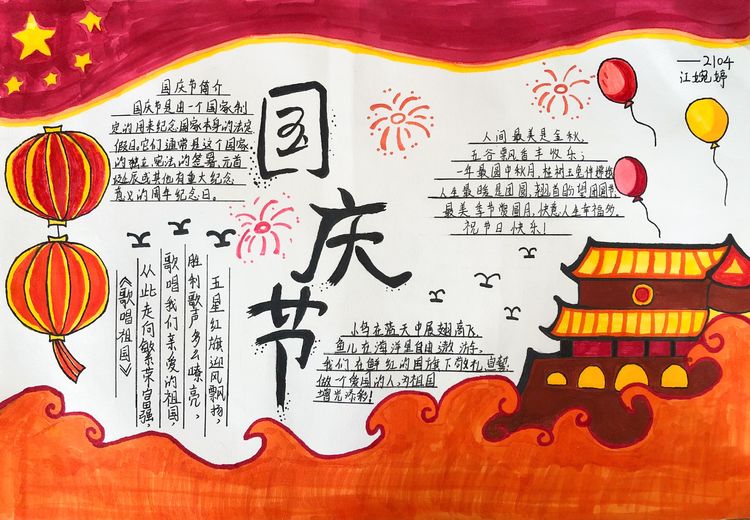 国庆节简介
国庆节是由一个国家制
定的用来纪念国家本身的法定
假日。它们通常是这个国家
的独立、宪法的签署、元首
诞辰或其他有重大纪念
意义的周年纪念日。
国庆节
——2104
江婉婷
人间最美是金秋,
五谷飘香丰收乐;
一年最圆中秋月,桂树玉兔伴嫦娥
人生最暖是团圆,翘首盼望团圆节
最美季节赏圆月,快意人生幸福多。
祝节日快乐!
五星红旗迎风飘扬,
胜利歌声多么嘹亮,
歌唱我们亲爱的祖国,
从此走向繁荣富强,
《歌唱祖国》
小鸟在蓝天中展翅高飞,
鱼儿在海洋里自由遨游,
我们在鲜红的国旗下敬礼宣誓:
做一个爱国的人,为祖国
增光添彩!